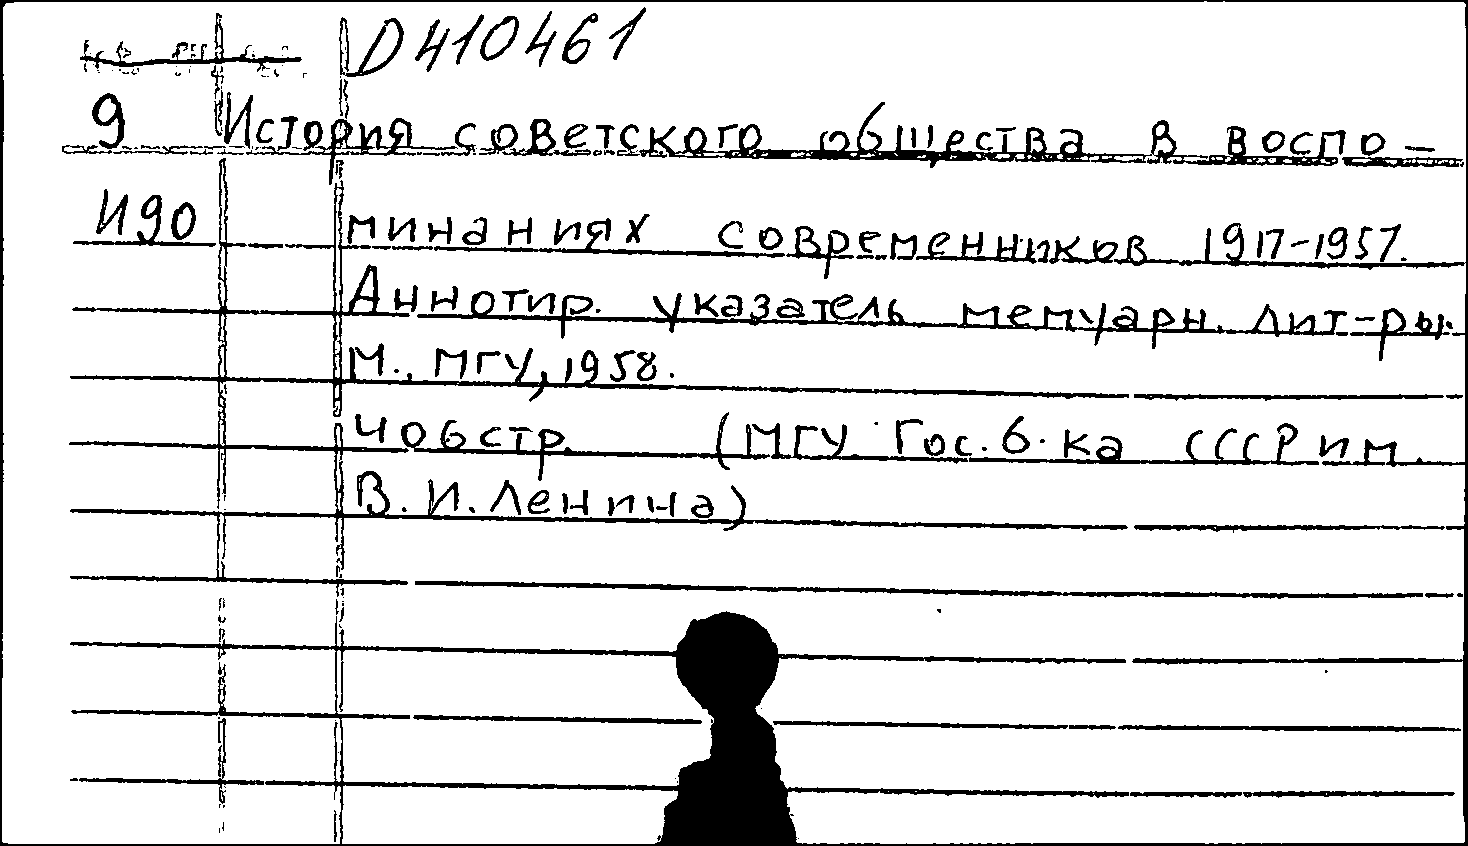 D410461
9 История советского общества в воспо-
И90 минаниях современников 1917-1957.
Аннотир. указатель мемуарн. лит-ры.
М., МГУ, 1958.
406стр. (МГУ. Гос. б-ка СССР им.
В. И. Ленина)